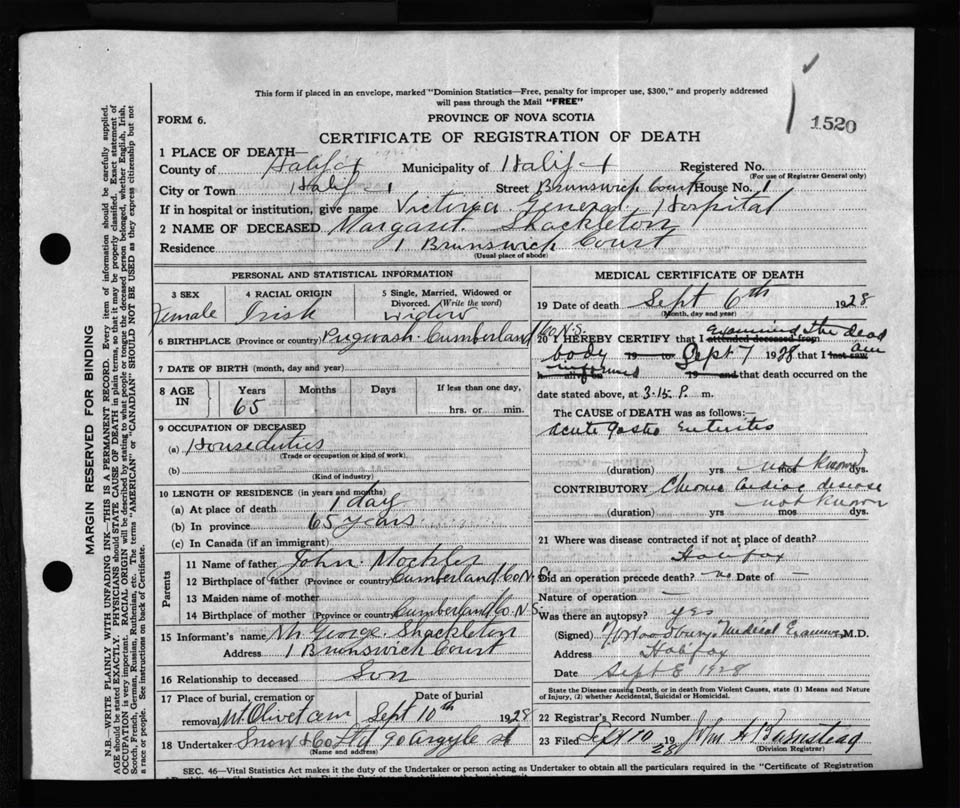 This form if placed in an envelope, marked "Dominion Statistics—Free, penalty for improper use, $300," and properly addressed
will pass through the Mail "FREE"
FORM 6.
PROVINCE OF NOVA SCOTIA
1520
CERTIFICATE OF REGISTRATION OF DEATH
1 PLACE OF DEATH—
County of Halifax Municipality of Halifax Registered No.
(For use of Registrar General only)
City or Town Halifax Street Brunswick Court House No. 1
If in hospital or institution, give name Victoria General Hospital
2 NAME OF DECEASED Margaret Shackleton
Residence 1 Brunswick Court
(Usual place of abode)
PERSONAL AND STATISTICAL INFORMATION
3 SEX
Female
4 RACIAL ORIGIN
Irish
5 Single, Married, Widowed or
Divorced. (Write the word)
Widow
6 BIRTHPLACE (Province or country) Pugwash Cumberland Co N.S.
7 DATE OF BIRTH (month, day and year)
8 AGE IN
Years Months Days
65
If less than one day,
hrs. or min.
9 OCCUPATION OF DECEASED
(a) House duties
(Trade or occupation or kind of work)
(b)
(Kind of industry)
10 LENGTH OF RESIDENCE (in years and months)
(a) At place of death 1 day
(b) In province 65 years
(c) In Canada (if an immigrant)
Parents
11 Name of father John Mockler
12 Birthplace of father (Province or country) Cumberland Co N.S.
13 Maiden name of mother
14 Birthplace of mother (Province or country) Cumberland Co. N.S.
15 Informant's name Mr George Shackleton
Address 1 Brunswick Court
16 Relationship to deceased Son
17 Place of burial, cremation or Date of burial
removal Mt Olivet Cem Sept 10th 1928
18 Undertaker Snow & Co Ltd 90 Argyle St
(Name and address)
MEDICAL CERTIFICATE OF DEATH
19 Date of death Sept 6th 1928
(Month, day and year)
20 I HEREBY CERTIFY that I attended deceased from Examined the dead
body 19 to Sept 7 1928 that I last saw am
informed 19 and that death occurred on the
date stated above, at 3.15 P. m.
The CAUSE of DEATH was as follows:—
Acute Gastro Enteritis
(duration) yrs. mos. dys. not known
CONTRIBUTORY Chronic Cardiac disease
(duration) yrs. mos. dys. not known
21 Where was disease contracted if not at place of death?
Halifax
Did an operation precede death? no Date of —
Nature of operation —
Was there an autopsy? yes
(Signed) Woodbury Medical Examiner M.D.
Address Halifax
Date Sept 8 1928
State the Disease causing Death, or in death from Violent Causes, state (1) Means and Nature
of Injury, (2) whether Accidental, Suicidal or Homicidal.
22 Registrar's Record Number
23 Filed Sept 10 1928 John A Bumstead
(Division Registrar)
SEC. 46—Vital Statistics Act makes it the duty of the Undertaker or person acting as Undertaker to obtain all the particulars required in the "Certificate of Registration
MARGIN RESERVED FOR BINDING
N.B.—WRITE PLAINLY WITH UNFADING INK—THIS IS A PERMANENT RECORD. Every item of information should be carefully supplied.
AGE should be stated EXACTLY. PHYSICIANS should STATE CAUSE OF DEATH in plain terms, so that it may be properly classified. Exact statement of
OCCUPATION is very important. RACIAL ORIGIN will be described by stating to what people or tongue the deceased person belonged, whether English, Irish,
Scotch, French, German, Russian, Ruthenian, etc. The terms "AMERICAN" or "CANADIAN" SHOULD NOT BE USED as they express citizenship but not
a race or people. See instructions on back of Certificate.